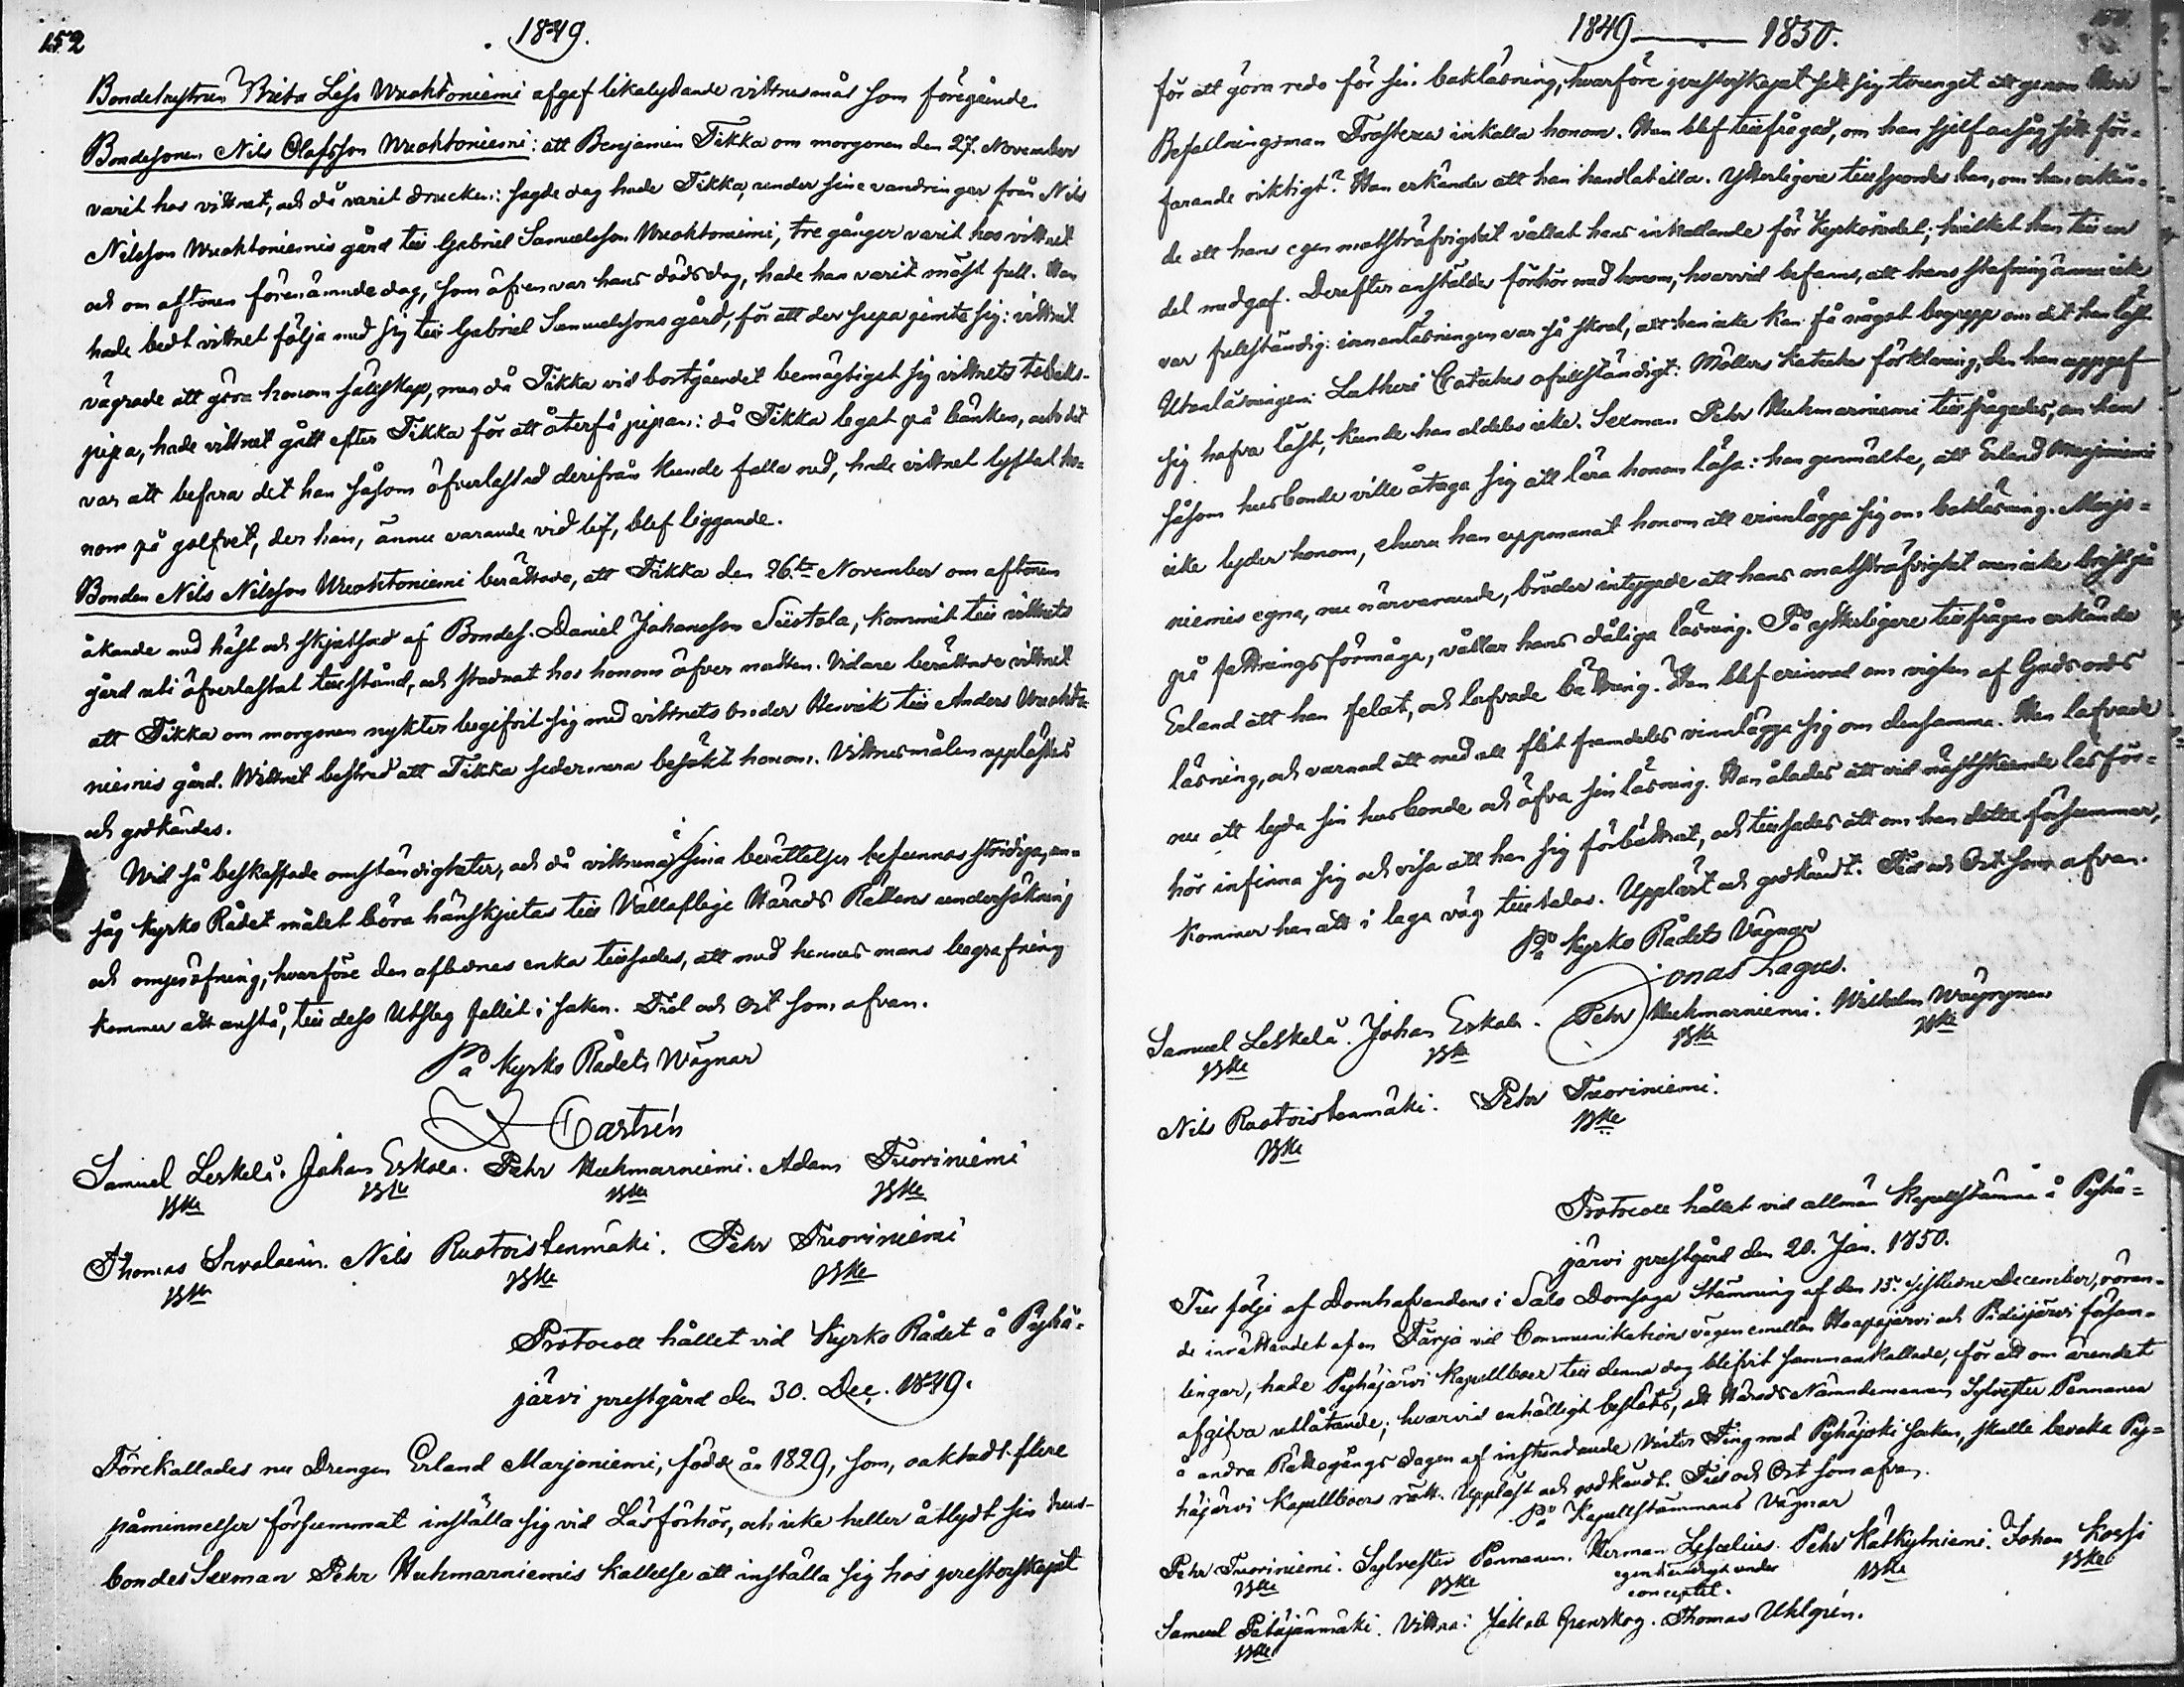 152
1849.
Bondehustrun Brita Lisa Wuohtoniemi afgef likalydande vittnesmål som föregående.
Bondesonen Nils Olafsson Wuohtoniemi: att Benjamin Tikka om morgonen den 27. November
varit hos vittnet, och då varit drucken: sagde dag hade Tikka, under sina vandringar från Nils
Nilsson Wuohtoniemis gård till Gabriel Samuelsson Wuohtoniemi, tre gånger varit hos vittnet
och om aftonen förenämnde dag, som äfven var hans dödsdag, hade han varit mäst full. Han
hade bedt vittnet följa med sig till Gabriel Samuelssons gård, för att der supa gimta sig: vittnet
vägrade att göra honom sällskap, men då Tikka vid bortgåendet bemägtigat sig vittnets tobaks-
pipa, hade vittnet gått efter Tikka för att återfå pipan: då Tikka legat på bänken, och det
var att befara det han såsom öfverlastad derifrån kunde falla ned, hade vittnet lyftat ho-
nom på golfvet, der han, ännu varande vid lif, blef liggande.
Bonden Nils Nilsson Wuohtoniemi berättade, att Tikka den 26.te November om aftonen
åkande med häst och skjutsad af Bondes. Daniel Johansson Siistola, kommit till vittnets
gård uti öfverlastat tillstånd, och stadnat hos honom öfver natten. Vidare berättade vittnet
att Tikka om morgonen nykter begifvit sig med vittnets broder Henrik till Anders Wuohto-
niemis gård. Wittnet bestred att Tikka sedermera besökt honom. Vittnesmålen upplästes
och godkändes.
Wid så beskaffade omständigheter, och då vittnena i sina berättelser befunnos stridiga, an-
såg Kyrko Rådet målet böra hänskjutas till Vällofliga Härads Rättens undersökning
och ompröfning, hvarföre den aflednes enka tillsades, att med hennes mans begrafning
kommer att anstå, till dess Utslag fallit i saken. Tid och Ort som ofvan.
På Kyrko Rådets Wägnar
Castrén
Samuel Leskelä. Johan Eskola. Pehr Huhmarniemi. Adam Tuoriniemi
Bmke Bmke Bmke Bmke
Thomas Savolainen. Nils Ruotoistenmäki. Pehr Tuoriniemi
Bmke Bmke Bmke
Protocoll hållet vid Kyrko Rådet å Pyhä-
järvi prestgård den 30. Dec. 1849.
Förekallades nu Drengen Erland Marjoniemi, född år 1829, som, oaktadt flere
påminnelser försummat inställa sig vid Läsförhör, och icke heller åtlydt sin hus-
bondes Sexman Pehr Huhmarniemis kallelse att inställa sig hos presterskapet
1849 ——— 1850.
för att göra redo för sin bokläsning, hvarföre presterskapet sett sig tvunget att genom Herr
Befallningsman Frosterus inkalla honom. Han blef tillfrågad, om han sjelf ansåg sitt för-
farande riktigt? Han erkände att han handlat illa. Ytterligere tillspordes han, om han erkän-
de att hans egen motsträfvighet vållat hans inkallande för Kyrkorådet; hvilket han till en
del medgaf. Derefter anstäldes förhör med honom, hvarvid befanns, att hans stafning ännu icke
var fullständig: innanläsningen var så skral, att han icke kan få något begrepp om det han läst
Utanläsningen: Lutheri Cateches ofullständigt: Möllers Kateches förklaring, den han uppgaf
sig hafva läst, kunde han aldeles icke. Sexman Pehr Huhmarniemi tillfrågades, om han
såsom husbonde ville åtaga sig att lära honom läsa: han genmälte, att Erland Marjoniemi
icke lyder honom, ehuru han uppmanat honom att vinnlägga sig om bokläsning. Marjo-
niemis egna, nu närvarande, bröder intygade att hans motsträfvighet men icke brist på
på fattningsförmåga, vållar hans dåliga läsning. På ytterligere tillfrågan erkände
Erland att han felat, och lofvade bättring. Han blef erinrad om vigten af Guds ords
läsning, och varnad att med all flit framdeles vinnlägga sig om densamma. Han lofvade
nu att lyda sin husbonde och öfva sin läsning. Han ålades att vid nästskeende läsför-
hör infinna sig och visa att han sig förbättrat, och tillsades att om han detta försummar,
kommer han att i laga väg tilltalas. Uppläst och godkändt. Tid och Ort som ofvan.
På Kyrko Rådets Vägnar
Jonas Lagus.
Samuel Leskelä. Johan Eskola. Pehr Huhmarniemi. Wilhelm Wäyrynen
Bmke Bmke Bmke Bmke
Nils Ruotoistenmäki. Pehr Tuoriniemi.
Bmke Bmke
Protocoll hållet vid allmän Kapellstämma å Pyhä-
järvi prestgård den 20. Jan. 1850.
Till följe af Domhafvandens i Salo Domsaga Stämning af den 15. sistledne December, röran-
de inrättandet af en Färja vid Communikations vägen emellan Haapajärvi och Pidisjärvi försam-
lingar, hade Pyhäjärvi Kapellboer till denna dag blifvit sammankallade, för att om ärendet
afgifva utlåtande; hvarvid enhälligt beslöts, att Härads Nämndemannen Sylvester Pennanen
å andra Rättegångs dagen af instundande Vinter Ting med Pyhäjoki socken, skulle bevaka Py-
häjärvi Kapellboers rätt. Uppläst och godkändt. Tid och Ort som ofvan.
På Kapellstämmans Vägnar
Pehr Tuoriniemi. Sylvester Pennanen. Herman Liselius. Pehr Kätkytniemi. Johan Korpi
Bmke Bmke egenhändigt under Bmke Bmke
conceptet.
Samuel Petäjänmäki. Vittna: Jakob Granskog. Thomas Uhlgrén.
Bmke